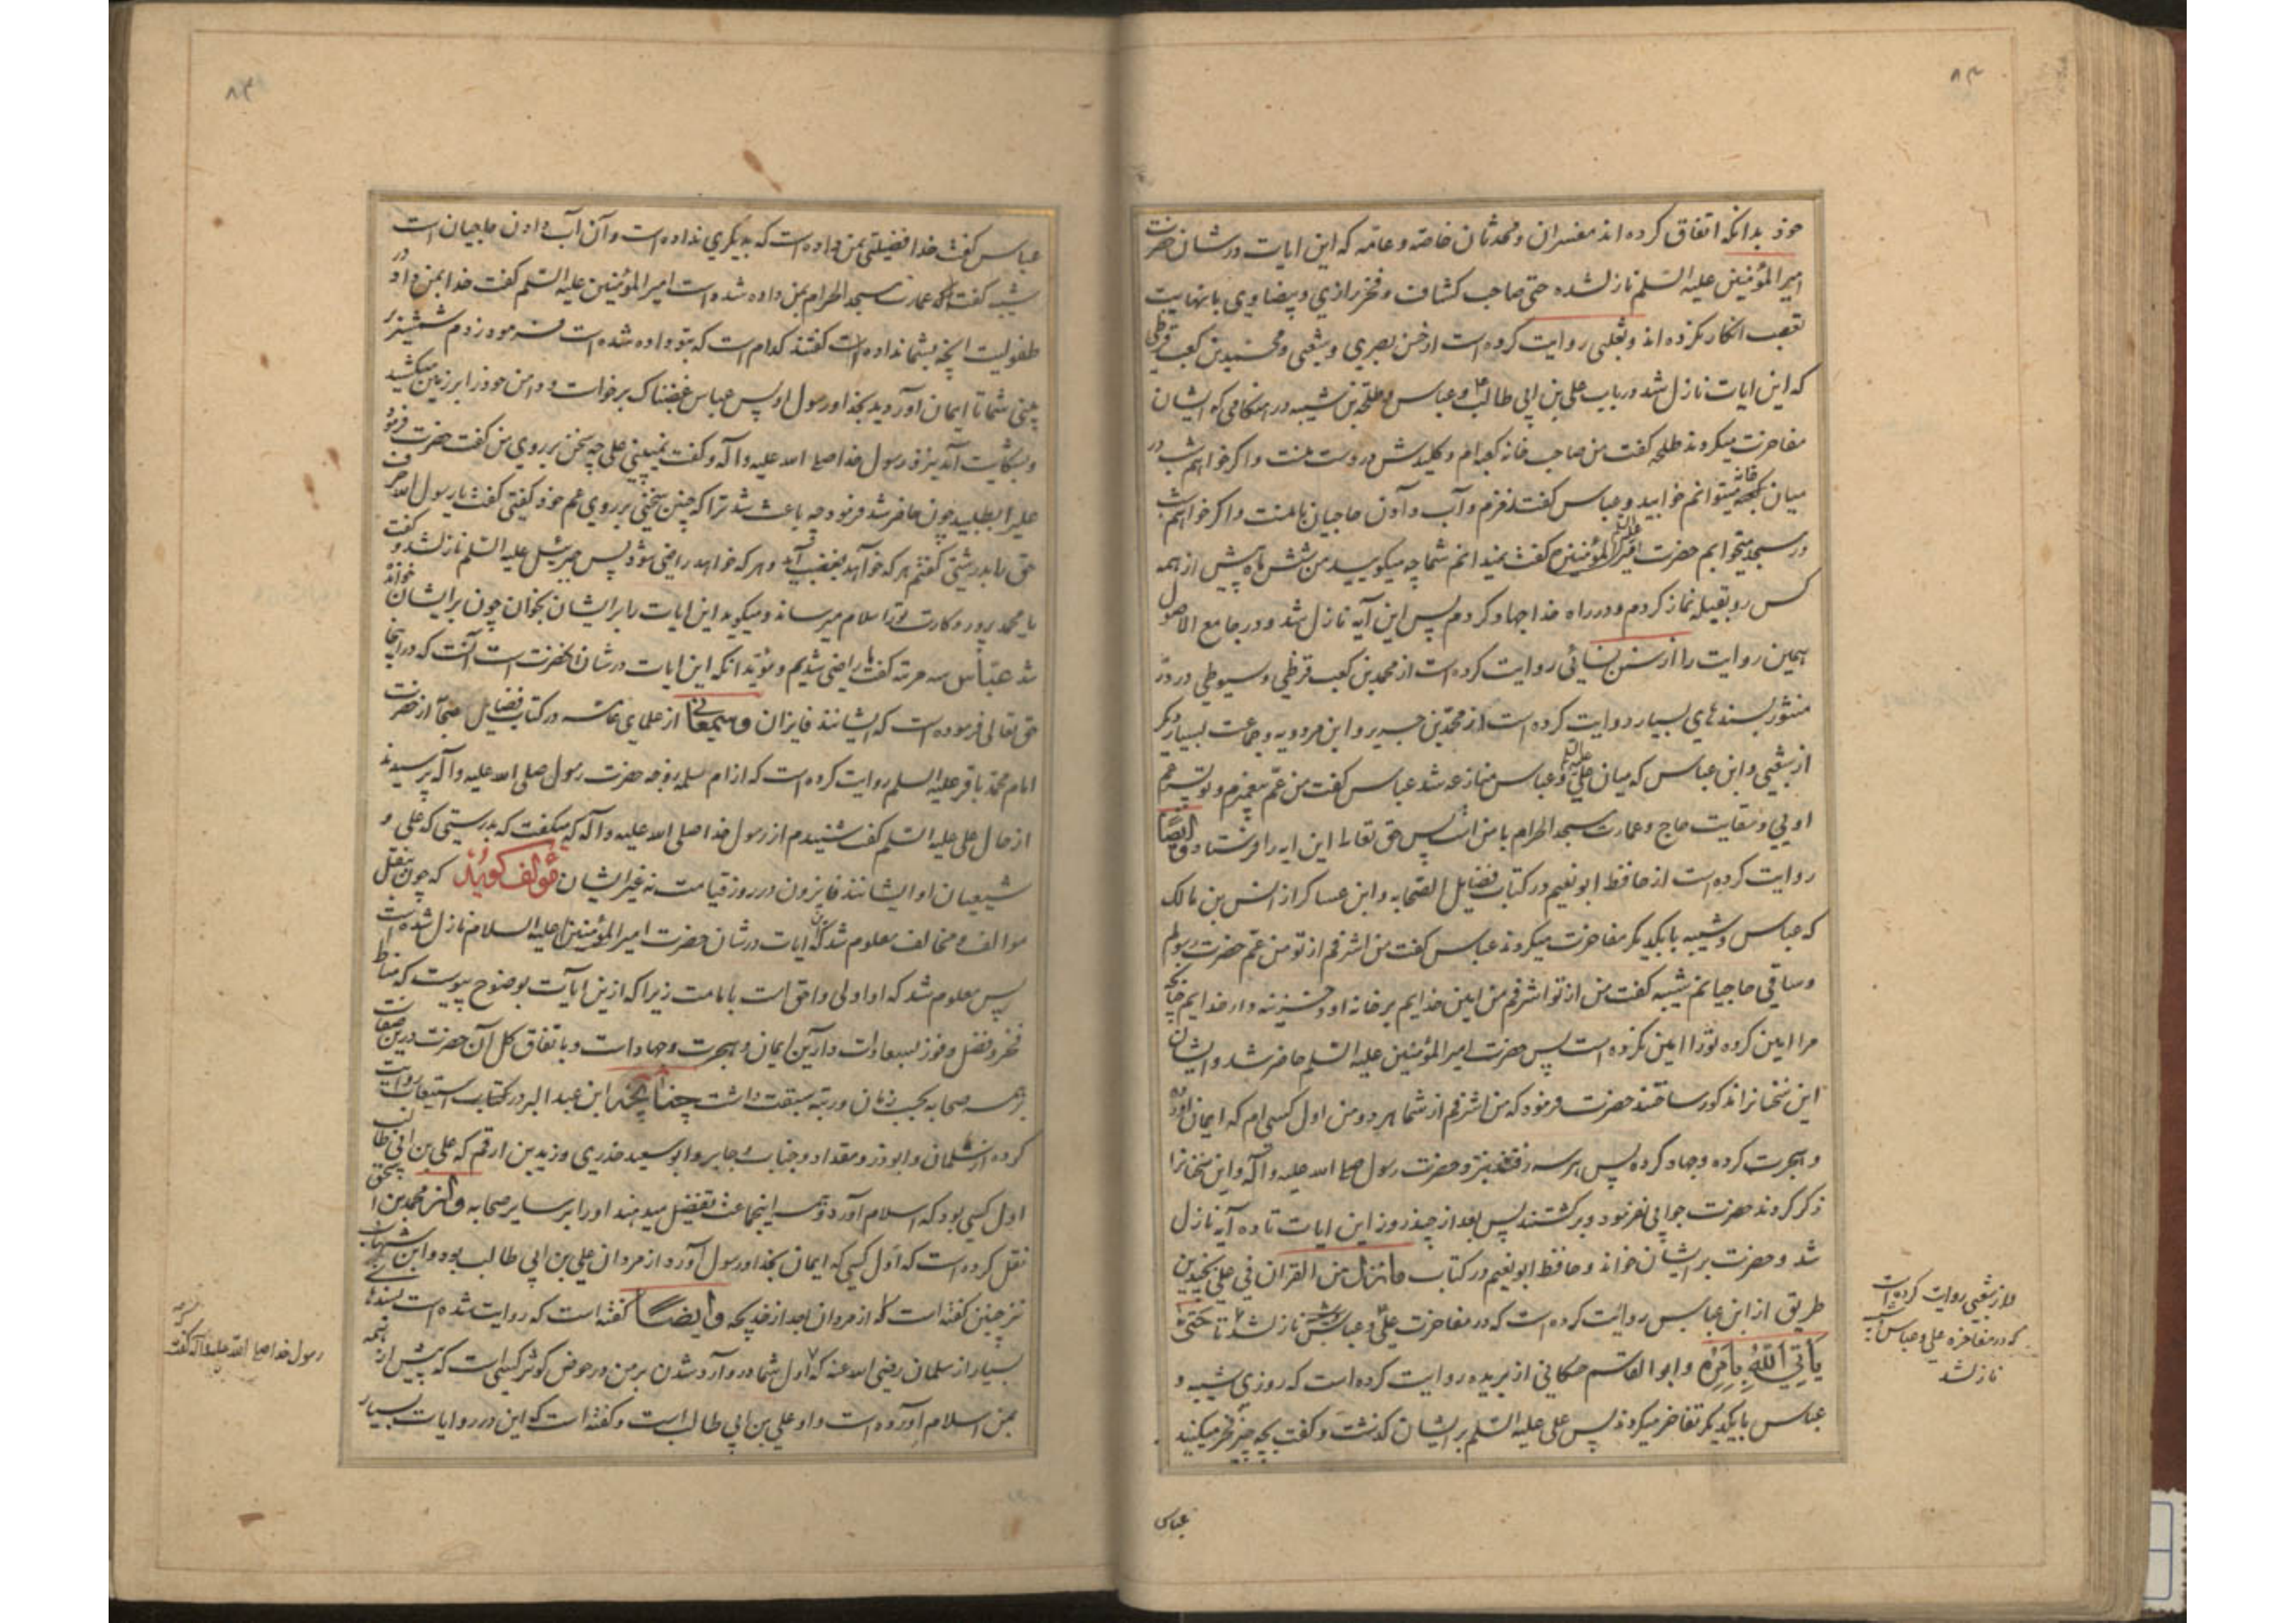 ۸۳
خود بدانکه اتفاق کرده اند مفسران و محدثان خاصه و عامه که این ایات در شان حضرت
امیر المؤمنین علیه السلم نازلشده حتی صاحب کشاف و فخر رازی و بیضاوی با نهایت
تعصب انکار نکرده اند و ثعلبی روایت کرده است از حسن بصری و شعبی و محمد بن کعب قرظی
که این ایات نازل شد در باب علی بن ابی طالب و عباس و طلحة بن شیبه در هنکامی که ایشان
مفاخرت میکردند طلحه کفت من صاحب خانه کعبه ام و کلیدش در دست منست و اکر خواهم شب در
میان خانه میتوانم خوابید و عباس کفت زمزم و آب دادن حاجیان با منست و اکر خواهم شب
در مسجد میخوابم حضرت امیر المؤمنین علیه السلم کفت نمیدانم شما چه میکویید من شش ماه پیش از همه
کس رو بقبله نماز کردم و در راه خدا جهاد کردم پس این آیه نازل شد و در جامع الاصول
همین روایت را از سنن نسائی روایت کرده است از محمد بن کعب قرظی و سیوطی در در
منثور بسندهای بسیار روایت کرده است از محمد بن جریر و ابن مردویه و جماعت بسیار دیکر
از شعبی و ابن عباس که میان علی علیه السلم و عباس منازعه شد عباس کفت من عم پیغمبرم و تو پسر عم
اویی و سقایت حاج و عمارت مسجد الحرام با من است پس حق تعالی این ایه را فرستاد و ایضا
روایت کرده است از حافظ ابو نعیم در کتاب فضایل الصحابه و ابن عساکر از انس بن مالک
که عباس و شیبه با یکدیکر مفاخرت میکردند عباس کفت من اشرفم از تو من عم حضرت رسولم
و ساقی حاجیانم شیبه کفت من از تو اشرفم من امین خدایم بر خانه او و خزینه دار خدایم چنانچه
مرا امین کرده تو را امین نکرده است پس حضرت امیر المؤمنین علیه السلم حاضر شد و ایشان
این سخنانرا مذکور ساختند حضرت فرمود که من اشرفم از شما هر دو من اول کسی ام که ایمان آورده
و هجرت کرده و جهاد کرده پس هر سه رفتند بنزد حضرت رسول صلی الله علیه و آله و این سخنانرا
ذکر کردند حضرت جوابی نفرمود و برکشتند پس بعد از چند روز این ایات تا ده آیه نازل
شد و حضرت بر ایشان خواند و حافظ ابو نعیم در کتاب ما نزل من القران فی علی بچندین
طریق از ابن عباس روایت کرده است که در مفاخرت علی و عباس نازلشد تا حتی
یأتی الله بأمره و ابو القاسم حسکانی از بریده روایت کرده است که روزی شیبه و
عباس با یکدیکر تفاخر میکردند پس علی علیه السلم بر ایشان کذشت و کفت بچه چیز فخر میکنید
و از شعبی روایت کرده است
که در مفاخره علی و عباس
نازلشد
عباس
۸۴
عباس کفت خدا فضیلتی بمن داده است که بدیکری نداده است و آن آب دادن حاجیان است
شیبه کفت که عمارت مسجد الحرام بمن داده شده است امیر المؤمنین علیه السلم کفت خدا بمن داد در
طفولیت انچه بشما نداده است کفتند کدام است که بتو داده شده است فرمود زدم شمشیر بر
بینی شما تا ایمان آوردید بخدا و رسول او پس عباس غضبناک برخاست و دامن خود را بر زمین میکشید
و بشکایت آمد نزد رسول خدا صلی الله علیه و آله و کفت نمیبینی علی چه سخن بر روی من کفت حضرت فرمود
علیرا بطلبید چون حاضر شد فرمود چه باعث شد ترا که چنین سخنی بر روی عم خود کفتی کفت یا رسول الله حرف
حق را بدرشتی کفتم هر که خواهد بغضب آید و هر که خواهد راضی شود پس جبرئیل علیه السلم نازلشد و کفت
یا محمد پروردکارت تو را سلام میرساند و میکوید این ایات را بر ایشان بخوان چون بر ایشان خوانده
شد عباس سه مرتبه کفت ما راضی شدیم و مؤید انکه این ایات در شان انحضرت است آنست که در اینجا
حق تعالی فرموده است که ایشانند فایزان و سمعانی از علمای عامه در کتاب فضایل صحابه از حضرت
امام محمد باقر علیه السلم روایت کرده است که از ام سلمه زوجه حضرت رسول صلی الله علیه و آله پرسیدند
از حال علی علیه السلم کفت شنیدم از رسول خدا صلی الله علیه و آله که میکفت که بدرستی که علی و
شیعیان او ایشانند فایزون در روز قیامت نه غیر ایشان مؤلف کوید که چون بنقل
موالف و مخالف معلوم شد که این ایات در شان حضرت امیر المؤمنین علیه السلام نازل شده است
پس معلوم شد که او اولی و احق است بامامت زیرا که ازین ایات بوضوح پیوست که مناط
فخر و فضل و فوز بسعادات دارین ایمان و هجرت و جهاد است و باتفاق کل آن حضرت درین صفات
بر همه صحابه بحسب زمان و رتبه سبقت داشت چنانچه ابن عبد البر در کتاب استیعاب روایت
کرده از سلمان و ابوذر و مقداد و خباب و جابر و ابو سعید خدری و زید بن ارقم که علی بن ابی طالب
اول کسی بود که اسلام آورد و همه اینجماعت تفضیل میدهند او را بر سایر صحابه و از محمد بن اسحق
نقل کرده است که اول کسی که ایمان بخدا و رسول آورد از مردان علی بن ابی طالب بود و ابن شهاب
نیز چنین کفته است که از مردان بعد از خدیجه و ایضا کفته است که روایت شده است بسندهای
بسیار از سلمان رضی الله عنه که اول شما در وارد شدن بر من در حوض کوثر کسی است که پیش از همه
بمن اسلام آورده است و او علی بن ابی طالب است و کفته است که این در روایات بسیار
رسول خدا صلی الله علیه و آله کفت